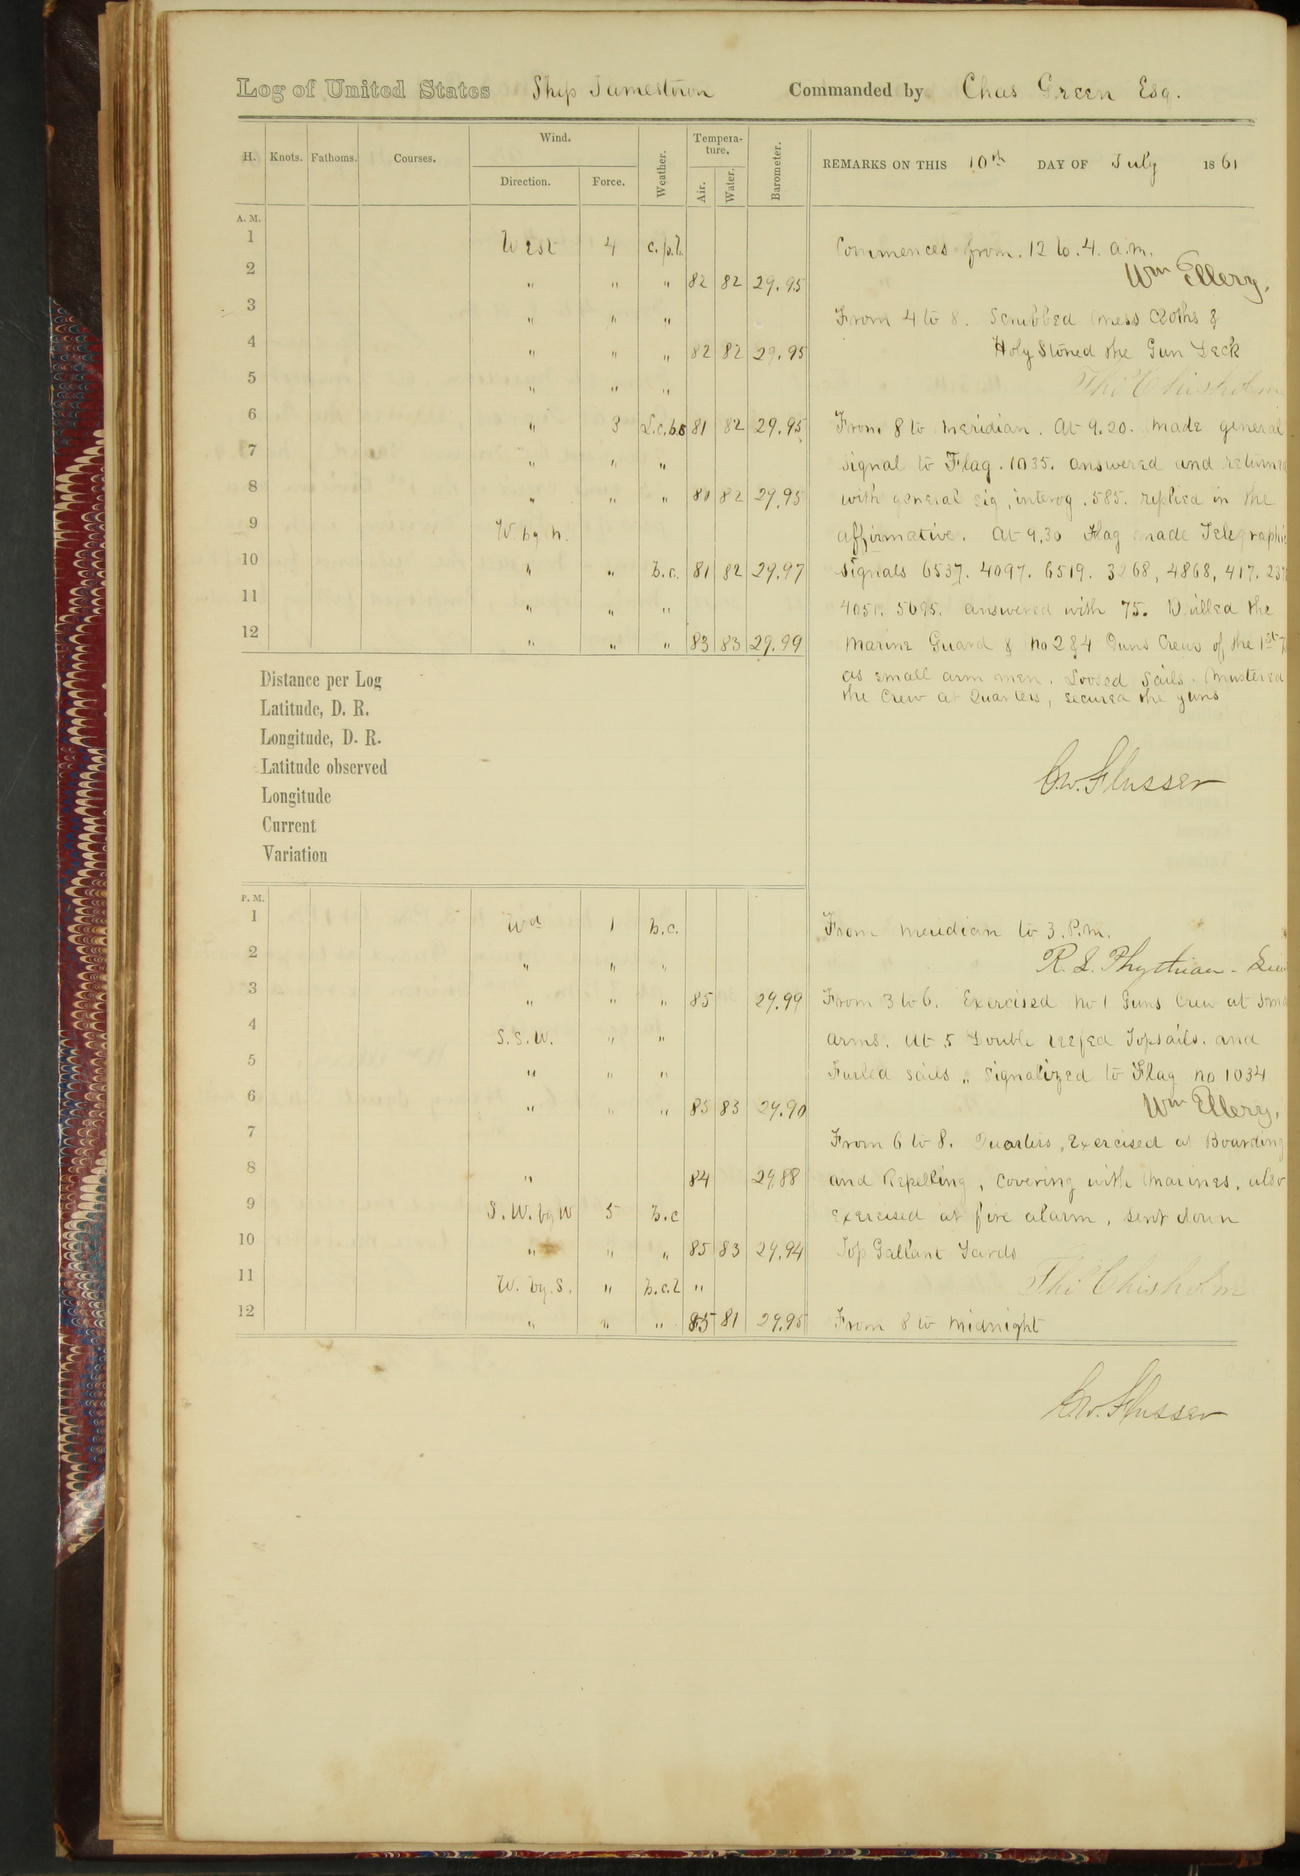 Log of United States Ship Jamestown Commanded by Chas Green Esq.
H. Knots. Fathoms. Courses. Wind. Direction. Force. Weather. Tempera-ture. Air. Water. Barometer. REMARKS ON THIS 10th DAY OF July 1861
A. M.
1 West 4
2 " " " 82 82 29.95
3 " " "
4 " " " 82 82 29.95
5 " " "
6 " 3 81 82 29.95
7 " " "
8 " " " 80 82 29.95
9 W. by N.
10 " " b.c. 81 82 29.97
11 " " "
12 " " " 83 83 29.99
Commences from. 12 to. 4. a.m.
Wm Ellery.
From 4 to 8. Scrubbed mess cloths &
Holy Stoned the Gun Deck
Tho Chisholm
From 8 to meridian. At 9.20. made general
signal to Flag. 1035. answered and returned
with general sig, interog. 585. replied in the
affirmative. At 9,30 Flag made Telegraphic
signals 6537. 4097. 6519. 3268, 4868, 417.
4051. 5695. answered with 75. Drilled the
Marine Guard & No 2 & 4 Guns Crews of the 1st
as small arm men. Loosed Sails. Mustered
the Crew at Quarters, secured the guns
C.W. Flusser
Distance per Log
Latitude, D. R.
Longitude, D. R.
Latitude observed
Longitude
Current
Variation
P. M.
1 Wd 1 b.c.
2 " " "
3 " " " 85 29.99
4 S.S.W. " "
5 " " "
6 " " " 85 83 29.90
7
8 " 84 29.88
9 S.W. by W 5 b.c
10 " " " 85 83 29.94
11 W. by. S. " b.c.l "
12 " " " 85 81 29.95
From meridian to 3. P.m.
R. L. Phythian -
From 3 to 6. Exercised No 1 Guns Crew at
arms. At 5 Double reefed Topsails. and
Furled sails „ Signalized to Flag no 1034
Wm Ellery.
From 6 to 8. Quarters, Exercised at Boarding
and Repelling, covering with Marines. also
exercised at fire alarm, sent down
Top Gallant Yards
Tho Chisholm
From 8 to midnight
C.W. Flusser